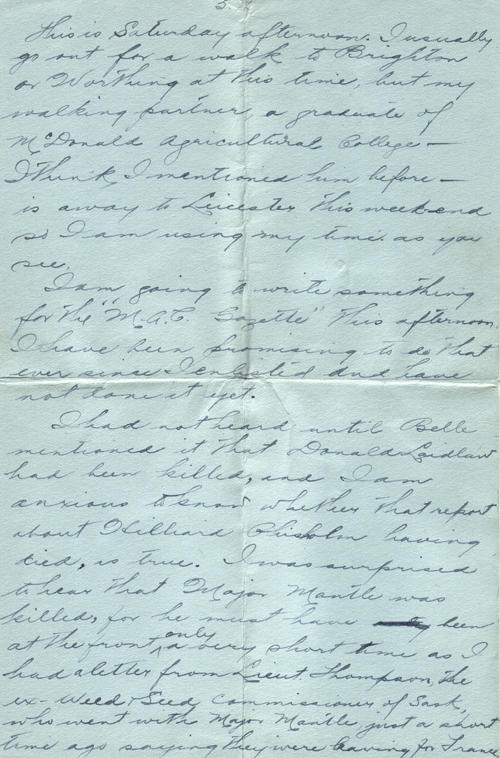 5.
This is Saturday afternoon. I usually
go out for a walk to Brighton
or Worthing at this time, but my
walking partner, a graduate of
McDonald Agricultural College —
I think I mentioned him before —
is away to Leicester this weekend
so I am using my time as you
see.
I am going to write something
for the "M.A.C. Gazette" this afternoon,
I have been promising to do that
ever since I enlisted and have
not done it yet.
I had not heard until Belle
mentioned it that Donald Laidlaw
had been killed, and I am
anxious to know whether that report
about Hilliard Chisholm having
died, is true. I was surprised
to hear that Major Mantle was
killed, for he must have been
at the front only a very short time as I
had a letter from Lieut. Thompson, the
ex-Weed & Seed Commissioner of Sask,
who went with Major Mantle, just a short
time ago saying they were leaving for France